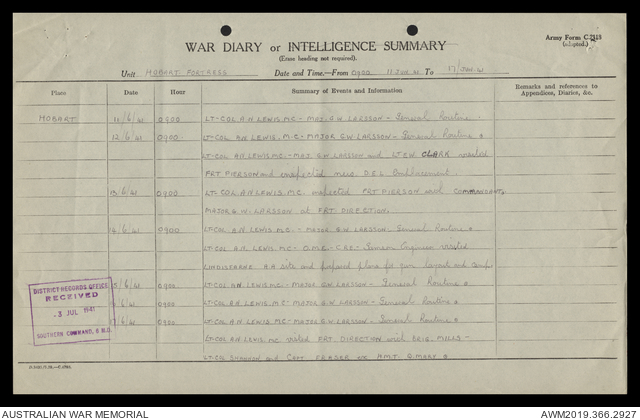 Army Form C.2118
(adapted.)
WAR DIARY or INTELLIGENCE SUMMARY
(Erase heading not required).
Unit HOBART FORTRESS Date and Time.—From 0900 11 JUN 41 To 17 JUN 41
Place Date Hour Summary of Events and Information Remarks and references to Appendices, Diaries, &c.
HOBART 11/6/41 0900 LT-COL A.N. LEWIS, MC - MAJ. G.W. LARSSON - General Routine.
12/6/41 0900 LT-COL A.N. LEWIS, M.C - MAJOR G.W. LARSSON - General Routine
LT-COL A.N. LEWIS. M.C - MAJ. G.W. LARSSON and LT E.W. CLARK visited
FRT PIERSON and inspected new D.E.L. Emplacement.
13/6/41 0900 LT. COL. A.N. LEWIS M.C. inspected FRT PIERSON with COMMANDANT,
MAJOR G.W. LARSSON at FRT DIRECTION.
14/6/41 0900 LT-COL A.N. LEWIS. M.C. - MAJOR G.W. LARSSON - General Routine
LT-COL A.N. LEWIS MC - Q.M.G - CRE - Engineer visited
LINDISFARNE A.A site and prepared plans for gun layout and camp
15/6/41 0900 LT-COL A.N. LEWIS. MC - MAJOR G.W. LARSSON - General Routine
16/6/41 0900 LT-COL A.N. LEWIS. M.C - MAJOR G.W. LARSSON - General Routine
17/6/41 0900 LT-COL A.N. LEWIS. M.C - MAJOR G.W. LARSSON - General Routine
LT-COL A.N. LEWIS. MC visited FRT. DIRECTION with BRIG. MILLS
LT-COL SHANNON and Capt FRASER on H.M.T. Q. MARY
DISTRICT RECORDS OFFICE
RECEIVED
-3 JUL 1941
SOUTHERN COMMAND, 6 M.D.
AUSTRALIAN WAR MEMORIAL AWM2019.366.2927